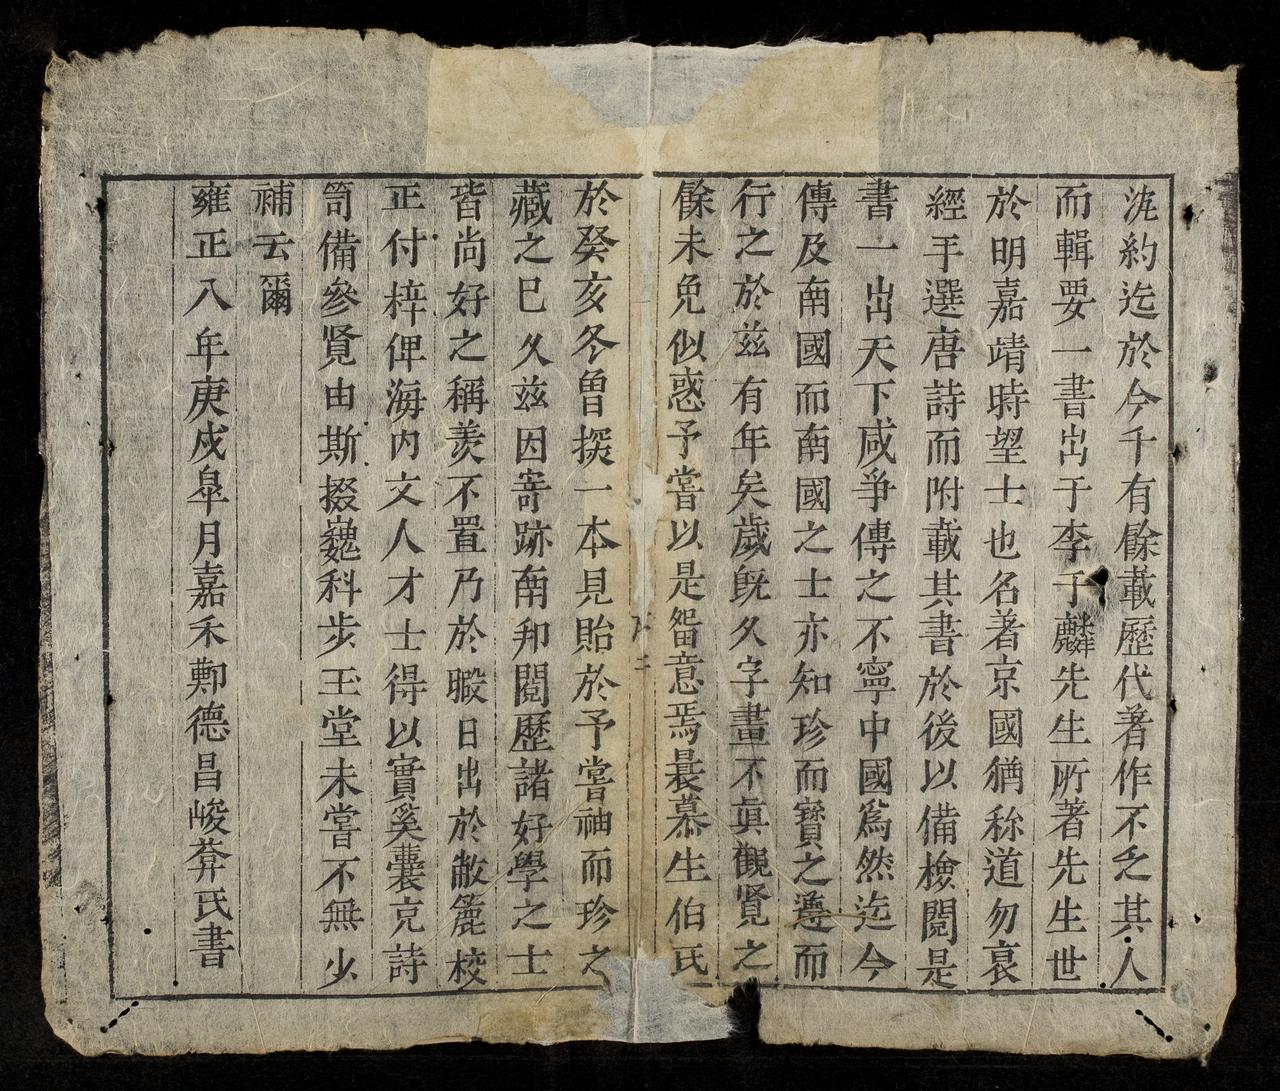 浣約迄於今千有餘載歷代著作不乏其人
而輯要一書出于李子麟先生所著先生世
於明嘉靖時望士也名著京國猶稱道勿衰
經手選唐詩而附載其書於後以備檢閱是
書一出天下咸爭傳之不寧中國為然迄今
傳及南國而南國之士亦知珍而寶之遵而
行之於茲有年矣歲既久字畫不眞觀覽之
餘未免似惑予嘗以是畱意焉曩慕生伯氏
二
於癸亥冬曾撰一本見貽於予嘗袖而珍之
藏之巳久茲因寄跡南邦閱歷諸好學之士
皆尚好之稱羨不置乃於暇日出於敝簏校
正付梓俾海內文人才士得以實奚囊克詩
笥備參覽由斯掇巍科步玉堂未嘗不無少
補云爾
雍正八年庚戍皐月嘉禾鄭德昌峻葊氏書